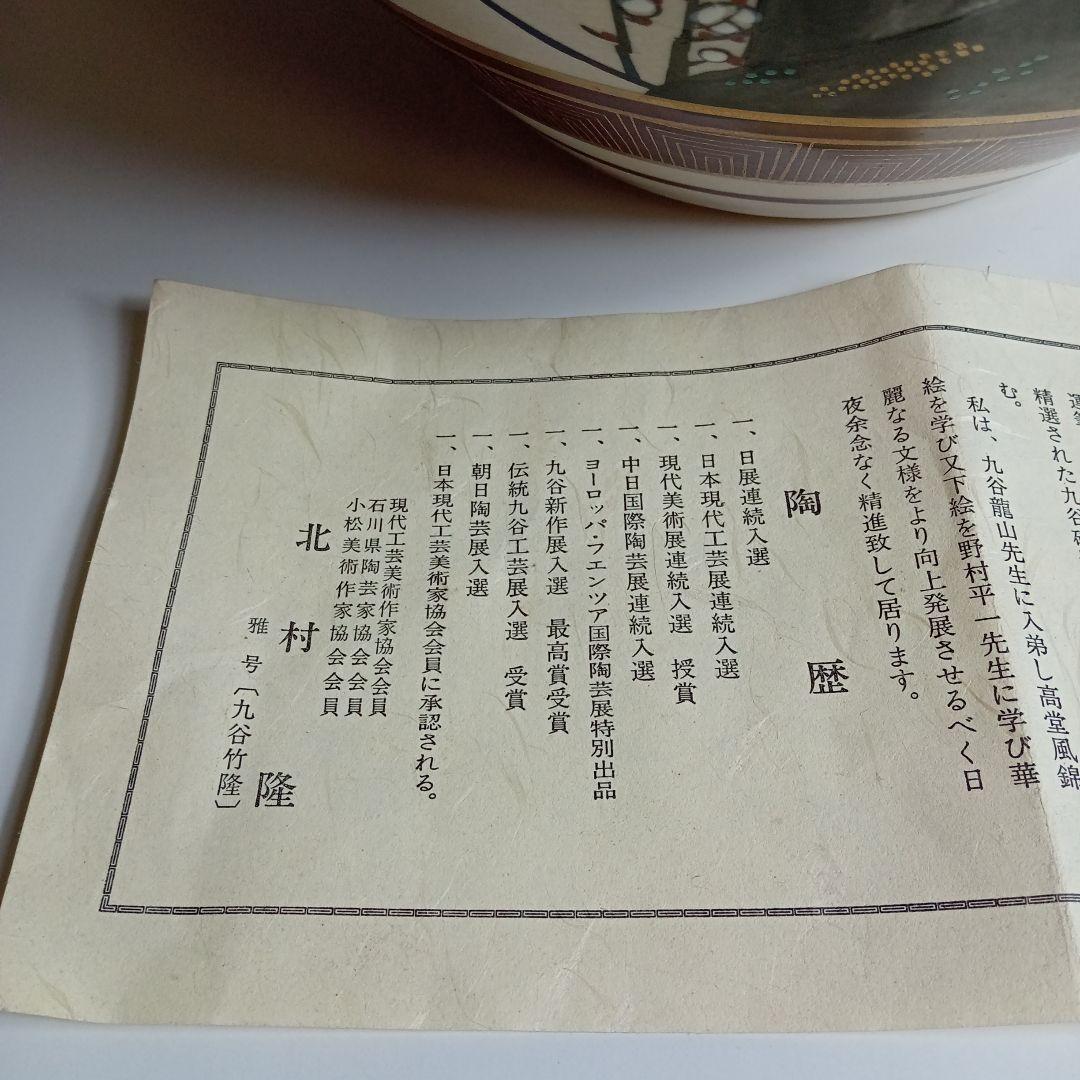 精選された九谷
む。
私は、九谷龍山先生に入弟し高堂風錦
絵を学び又下絵を野村平一先生に学び華
麗なる文様をより向上発展させるべく日
夜余念なく精進致して居ります。
陶歴
一、日展連続入選
一、日本現代工芸展連続入選
一、現代美術展連続入選 授賞
一、中日国際陶芸展連続入選
一、ヨーロッパ・フエンツア国際陶芸展特別出品
一、九谷新作展入選 最高賞受賞
一、伝統九谷工芸展入選 受賞
一、朝日陶芸展入選
一、日本現代工芸美術家協会会員に承認される。
現代工芸美術作家協会会員
石川県陶芸家協会会員
小松美術作家協会会員
北村隆
雅号〔九谷竹隆〕